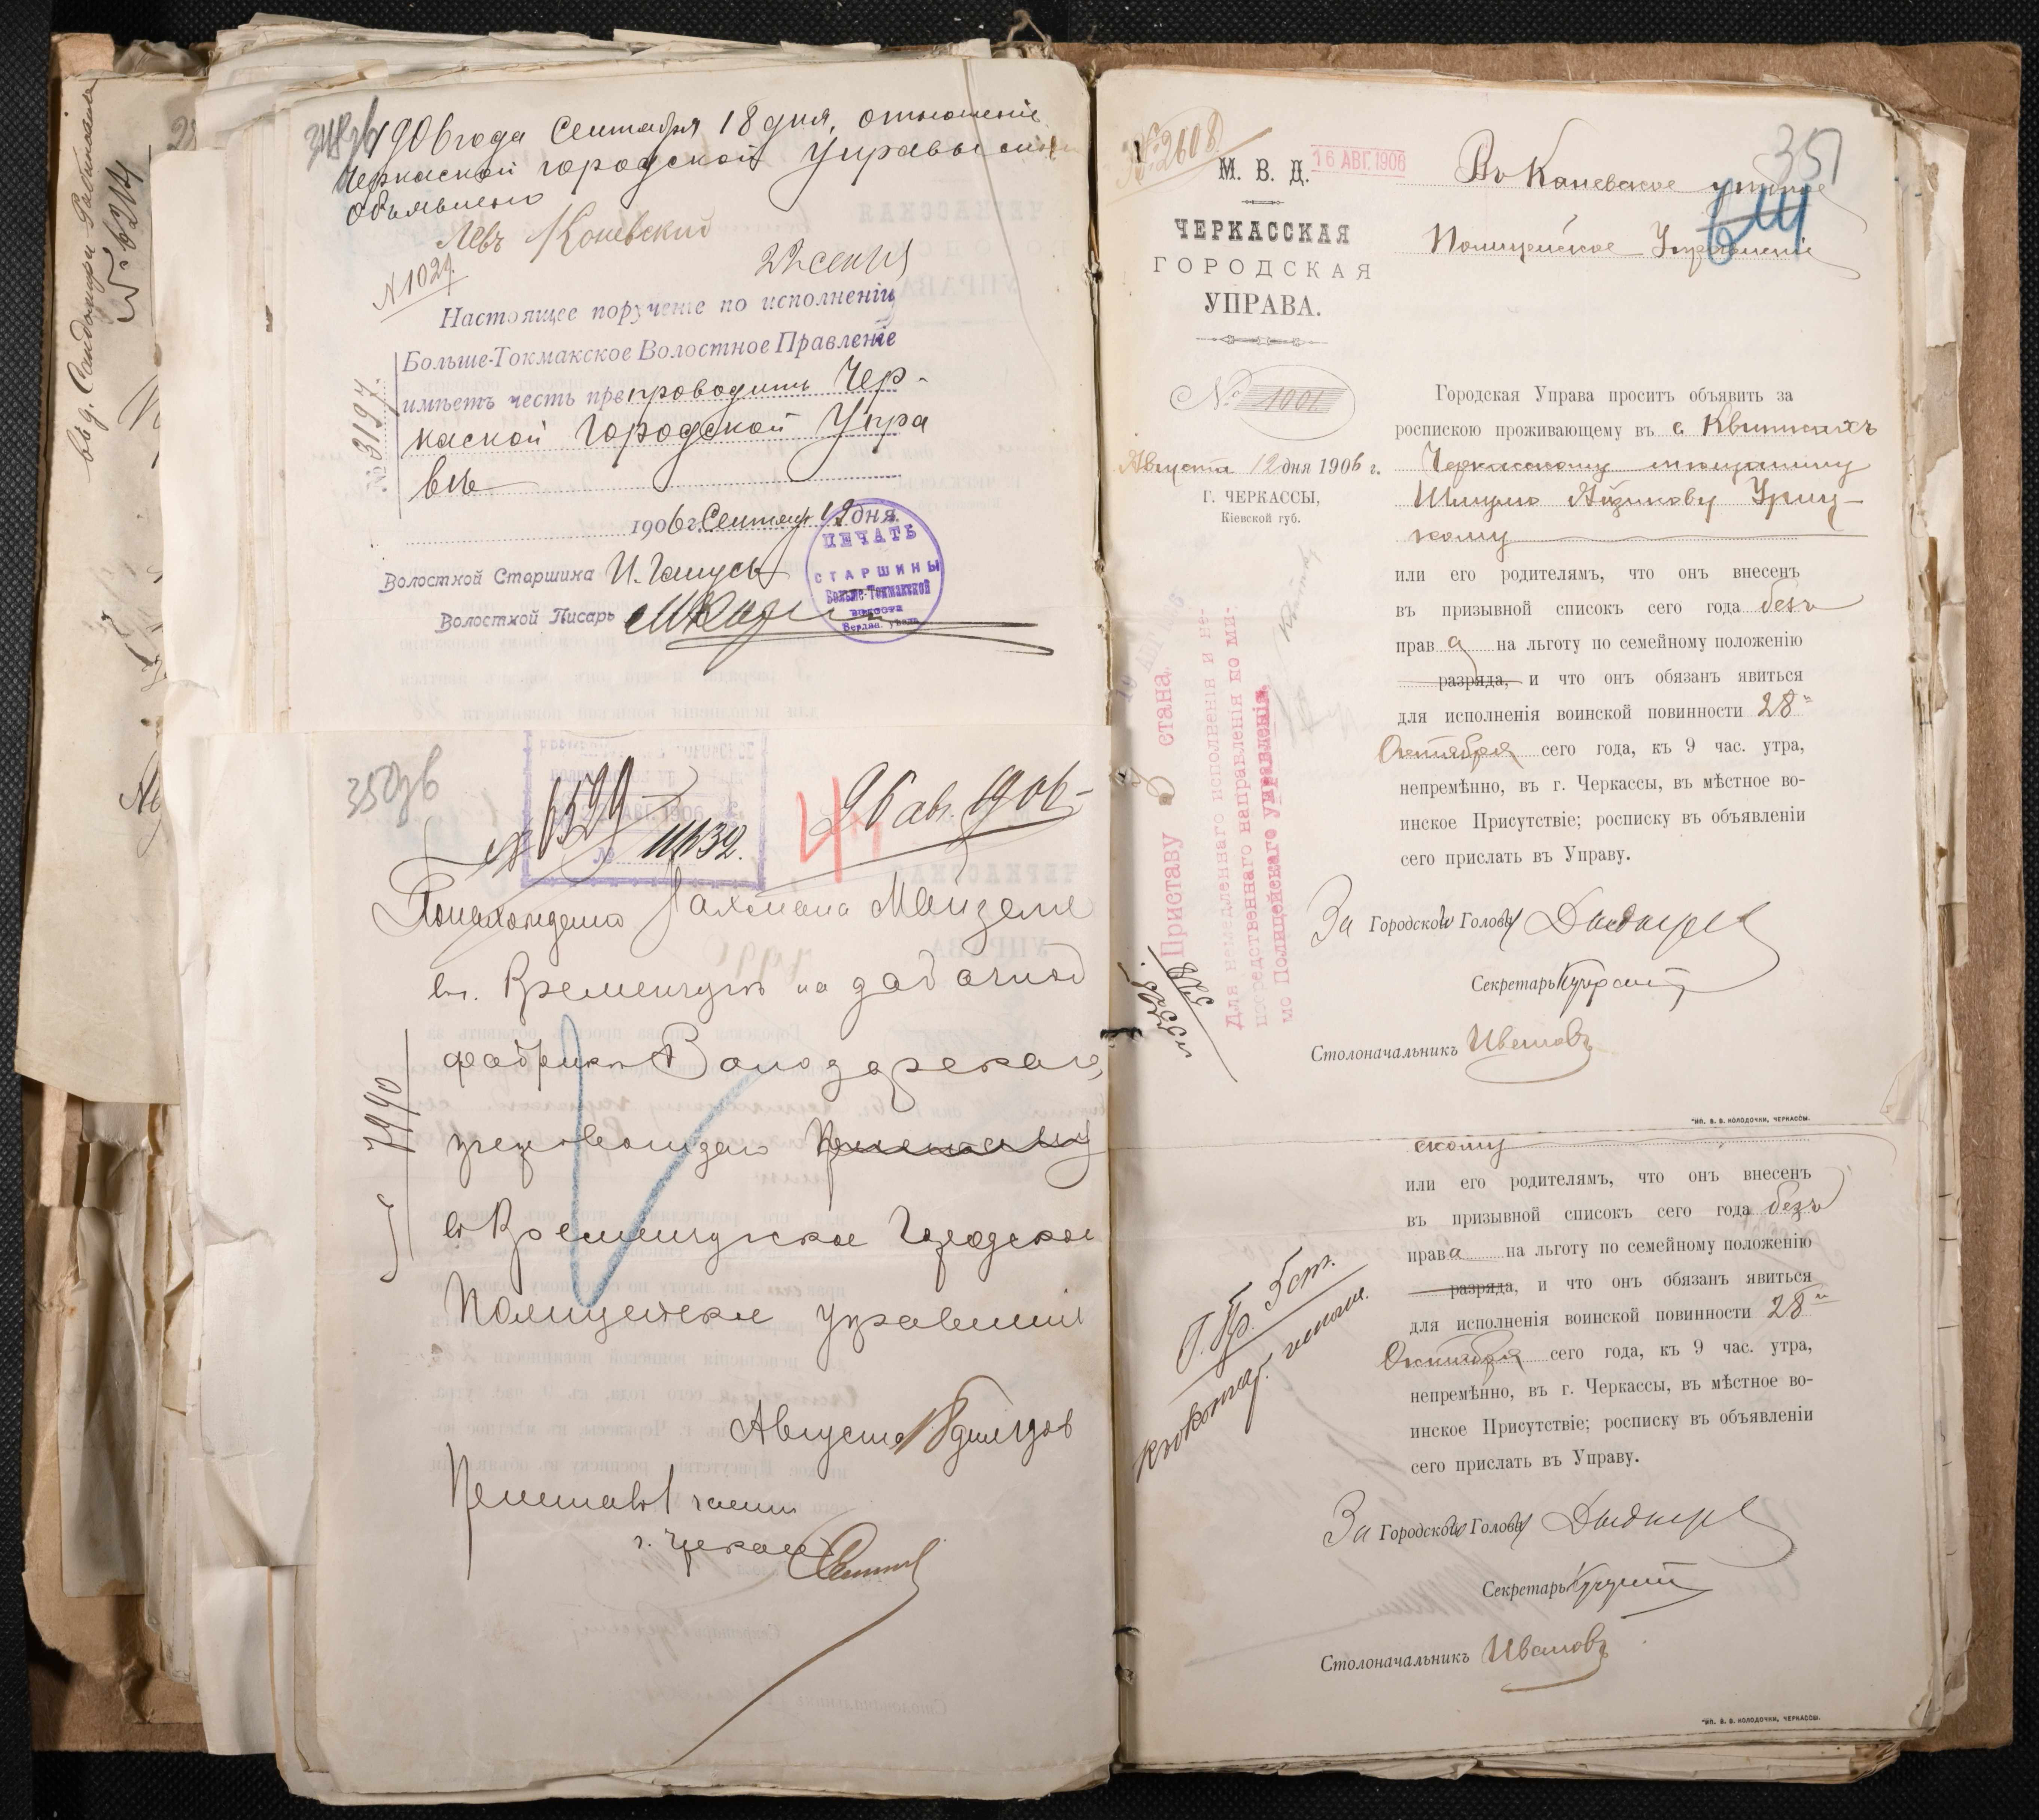 1906 года Сентября 18 дня, отношеніе
Черкаской городской Управы
Объявлено
Левъ Каневский
22 сент
№ 1027.
Настоящее порученіе по исполненіи
Больше-Токмакское Волостное Правленіе
имѣетъ честь препроводить Чер-
каской Городской Упра
вѣ
№ 3197.
1906 г. Сентяб 19 дня.
Волостной Старшина
Волостной Писарь
ПЕЧАТЬ
СТАРШИНЫ
Больше-Токмакской
волости
Бердян. уѣзда
350
№ 11632.
26 ав. 1906
Лахмана Майзеля
въ г. Кременчугѣ на табачной
фабрикѣ
препровождаю
въ Кременчугское Городское
Полицейское Управленіе
7990
Августа 18 дня 1906
Приставъ 1 части
г. Черкасъ
вѣд. Сандомири Рабиновича
№ 6214
№ 2608
М. В. Д.
16 АВГ. 1906
351
ЧЕРКАССКАЯ
ГОРОДСКАЯ
УПРАВА.
№ 4001
Августа 12 дня 1906 г.
Г. ЧЕРКАССЫ,
Кіевской губ.
Въ Каневское уѣздное
Полицейское Управленіе
Городская Управа проситъ объявить за
роспискою проживающему въ с. Квиткахъ
Черкасскому мѣщанину
Шлиумо Айзикову Уриц-
кому
или его родителямъ, что онъ внесенъ
въ призывной списокъ сего года безъ
права на льготу по семейному положенію
разряда, и что онъ обязанъ явиться
для исполненія воинской повинности 28"
Октября сего года, къ 9 час. утра,
непремѣнно, въ г. Черкассы, въ мѣстное во-
инское Присутствіе; росписку въ объявленіи
сего прислать въ Управу.
За Городской Головы
Секретарь
Столоначальникъ Ивановъ
ТИП. В. В. КОЛОДОЧКИ, ЧЕРКАССЫ.
Приставу 3 стана,
Для немедленнаго исполненія и не-
посредственнаго направленія по ми-
мо Полицейскаго управленія.
скому
или его родителямъ, что онъ внесенъ
въ призывной списокъ сего года безъ
права на льготу по семейному положенію
разряда, и что онъ обязанъ явиться
для исполненія воинской повинности 28"
Октября сего года, къ 9 час. утра,
непремѣнно, въ г. Черкассы, въ мѣстное во-
инское Присутствіе; росписку въ объявленіи
сего прислать въ Управу.
За Городской Головы
Секретарь
Столоначальникъ Ивановъ
ТИП. В. В. КОЛОДОЧКИ, ЧЕРКАССЫ.